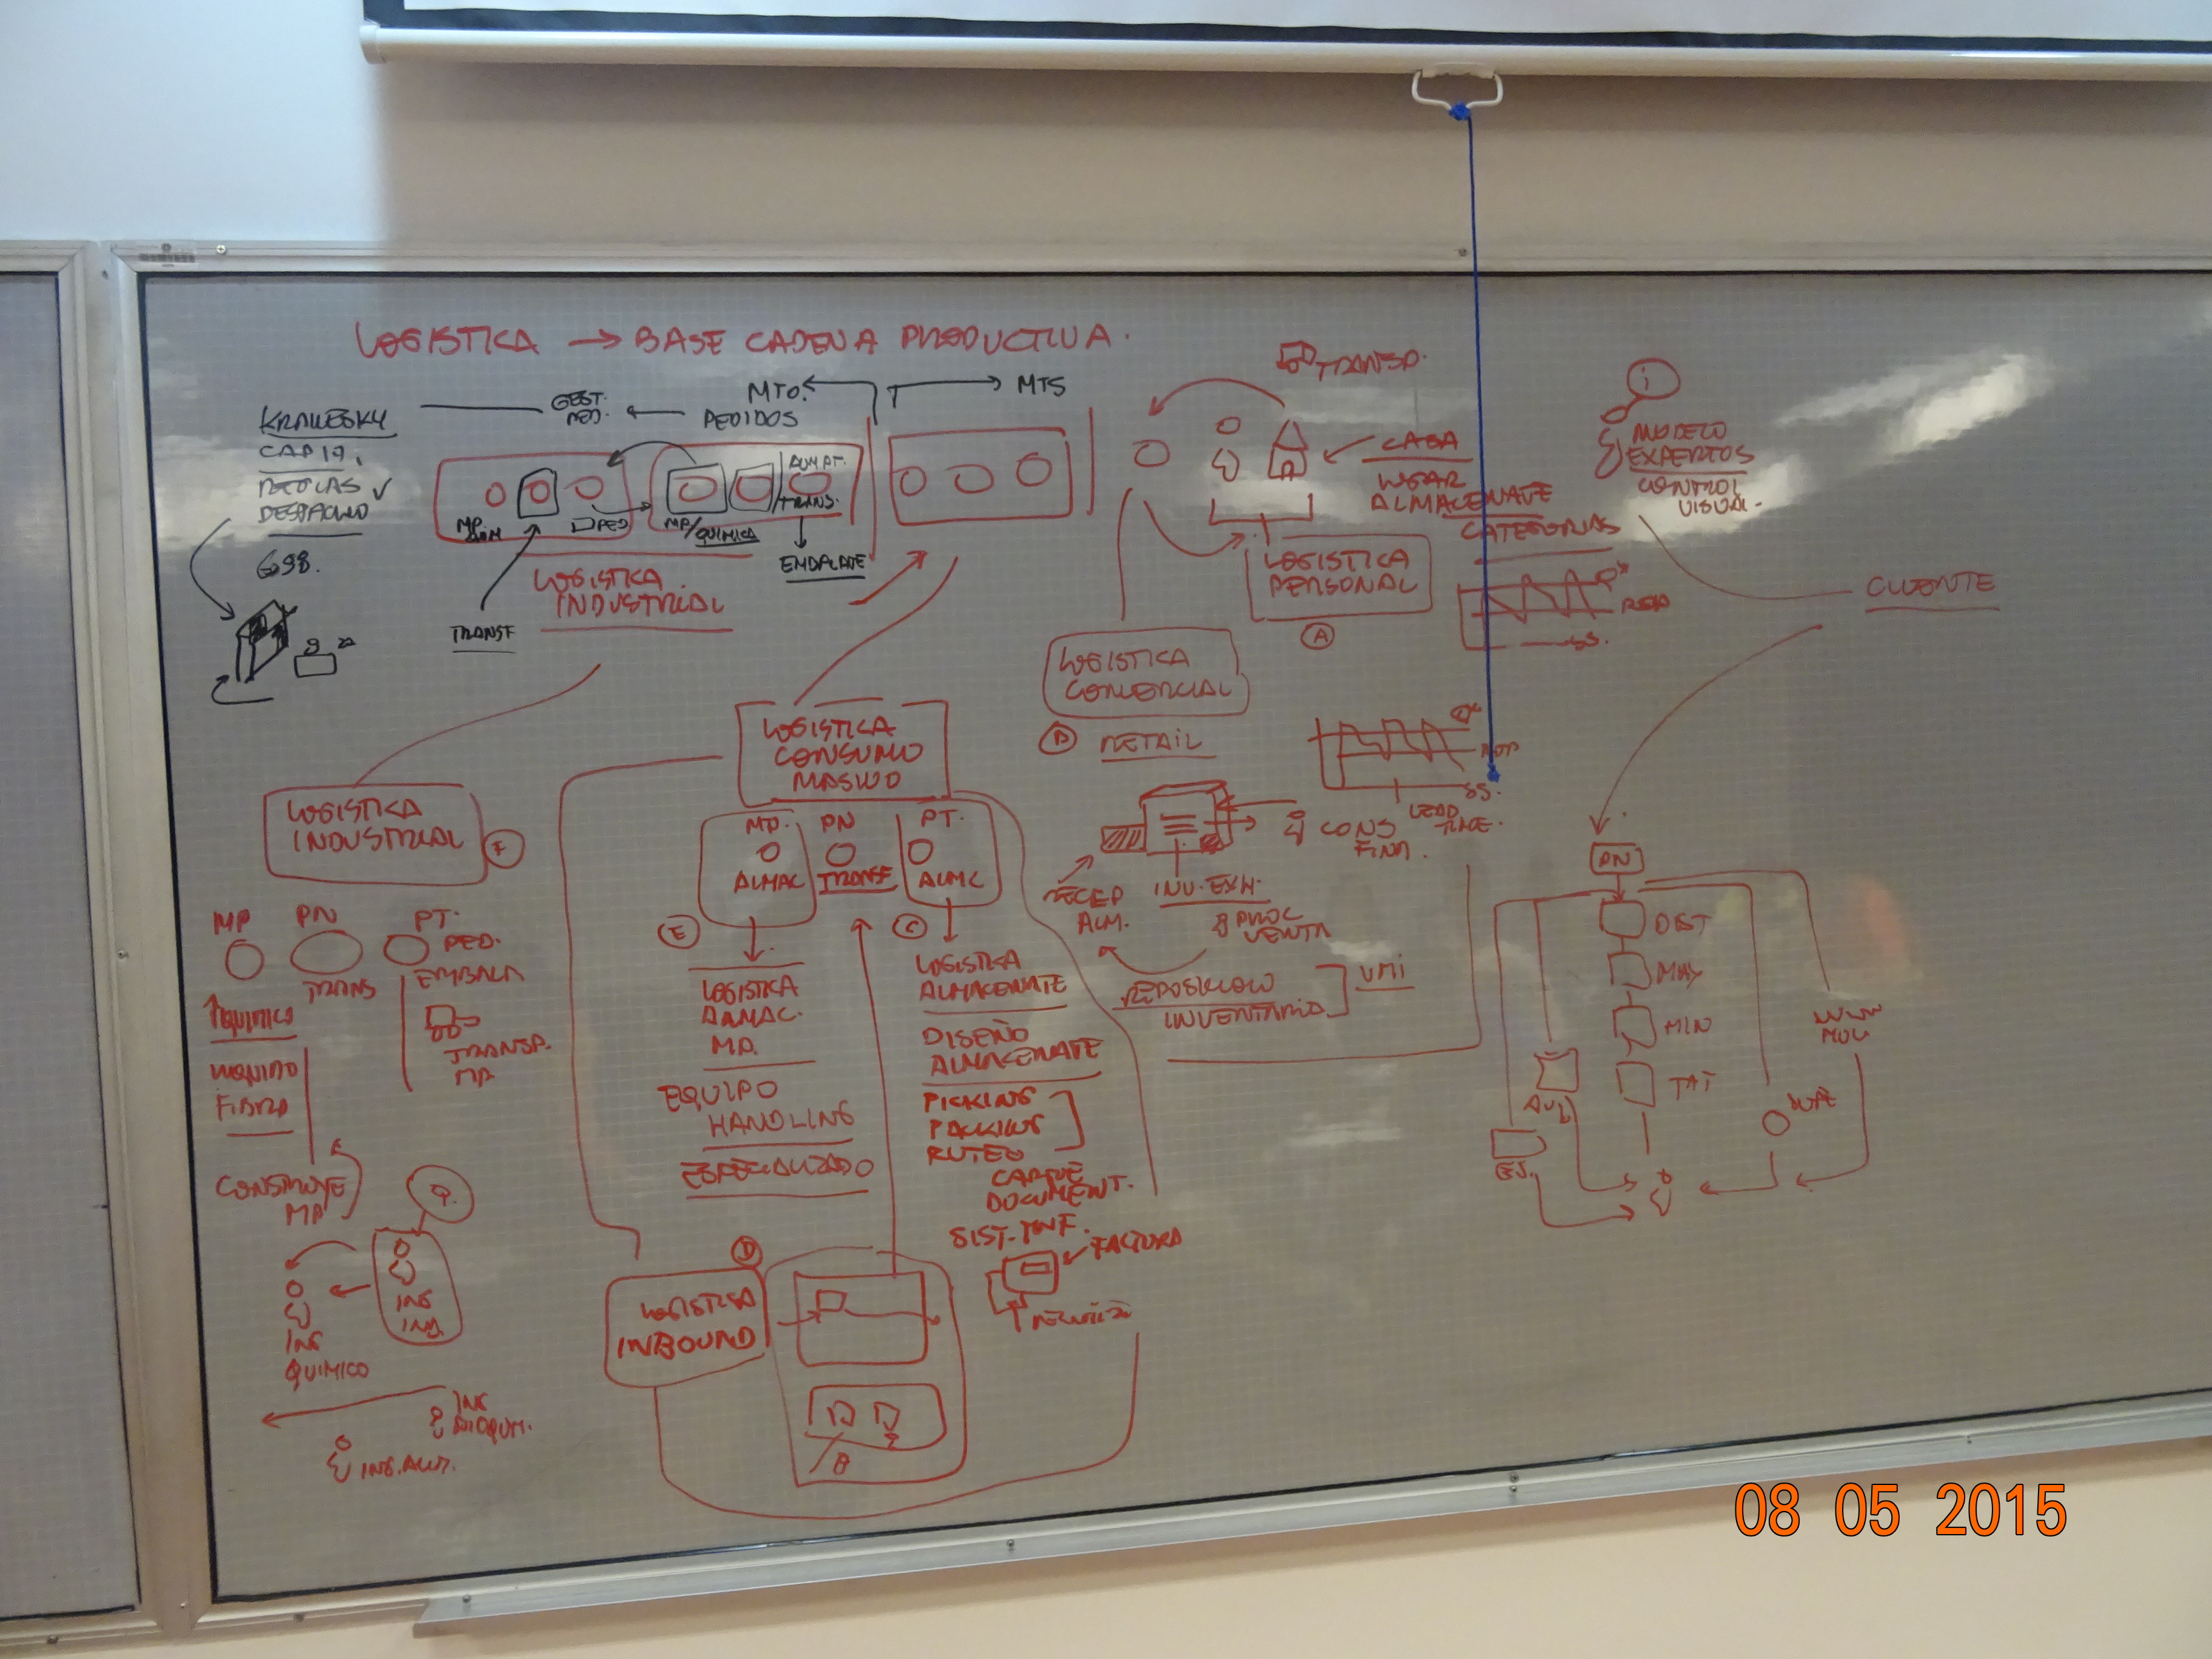 LOGISTICA → BASE CADENA PRODUCTIVA.
KRAWESKY
CAP 17,
REGLAS ✓
DESPACHO
698.
GEST.
PED.
← PEDIDOS
MTO.
MTS
MP
ALM
PED
MP/QUIMICA
ALM PT.
TRANS.
EMBALATE
TRANSF
LOGISTICA
INDUSTRIAL
TRANSP.
CASA
LUGAR
ALMACENATE
CATEGORIAS
LOGISTICA
PERSONAL
A
i
MODELO
EXPERTOS
CONTROL
VISUAL.
Q*
ROP
SS.
CLIENTE
LOGISTICA
COMERCIAL
B
RETAIL
Q*
ROP
SS.
LEAD
TIME.
CONS
FINA.
RECEP
ALM.
INV. EXH.
PROC
VENTA
REPOSICION
INVENTARIO
VMI
LOGISTICA
CONSUMO
MASIVO
MP.
PN
PT.
ALMAC
TRANSF
ALMC
E
C
LOGISTICA
ALMAC.
MP.
EQUIPO
HANDLING
ESPECIALIZADO
LOGISTICA
ALMACENATE
DISEÑO
ALMACENATE
PICKING
PACKING
RUTEO
CARGUE
DOCUMENT.
SIST. INF.
FACTURA
LOGISTICA
INDUSTRIAL
F
MP
PN
PT.
PED.
EMBALA
TRANS
QUIMICO
LIQUIDO
FIBRA
TRANSP.
MP
CONSTRUYE
MP
Q.
ING
IND.
ING
QUIMICO
ING
BIOQUM.
ING. ALIM.
D
LOGISTICA
INBOUND
PN
DIST
MAY
MIN
TAT